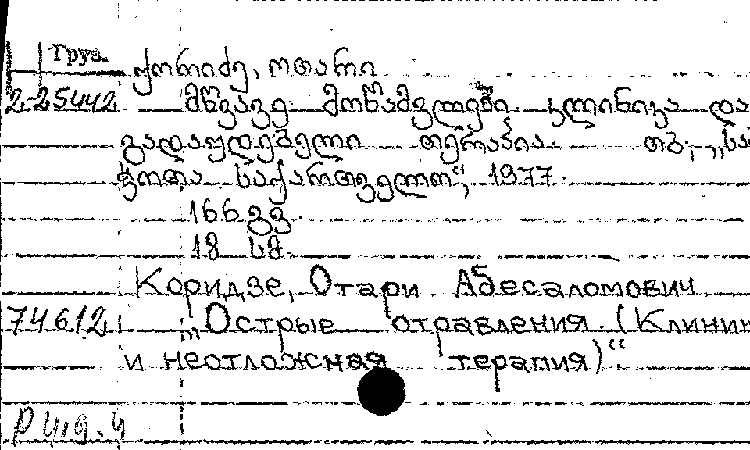 Груз.
ქორიძე, ოთარი
2.25442 მწვავე მოწამვლები. კლინიკა და
გადაუდებელი თერაპია. თბ., „სა
ჭოთა საქართველო“, 1977.
166 გვ.
18 სმ.
Коридзе, Отари Абесаломович
74612. „Острые отравления. (Клиник
и неотложная терапия)“.